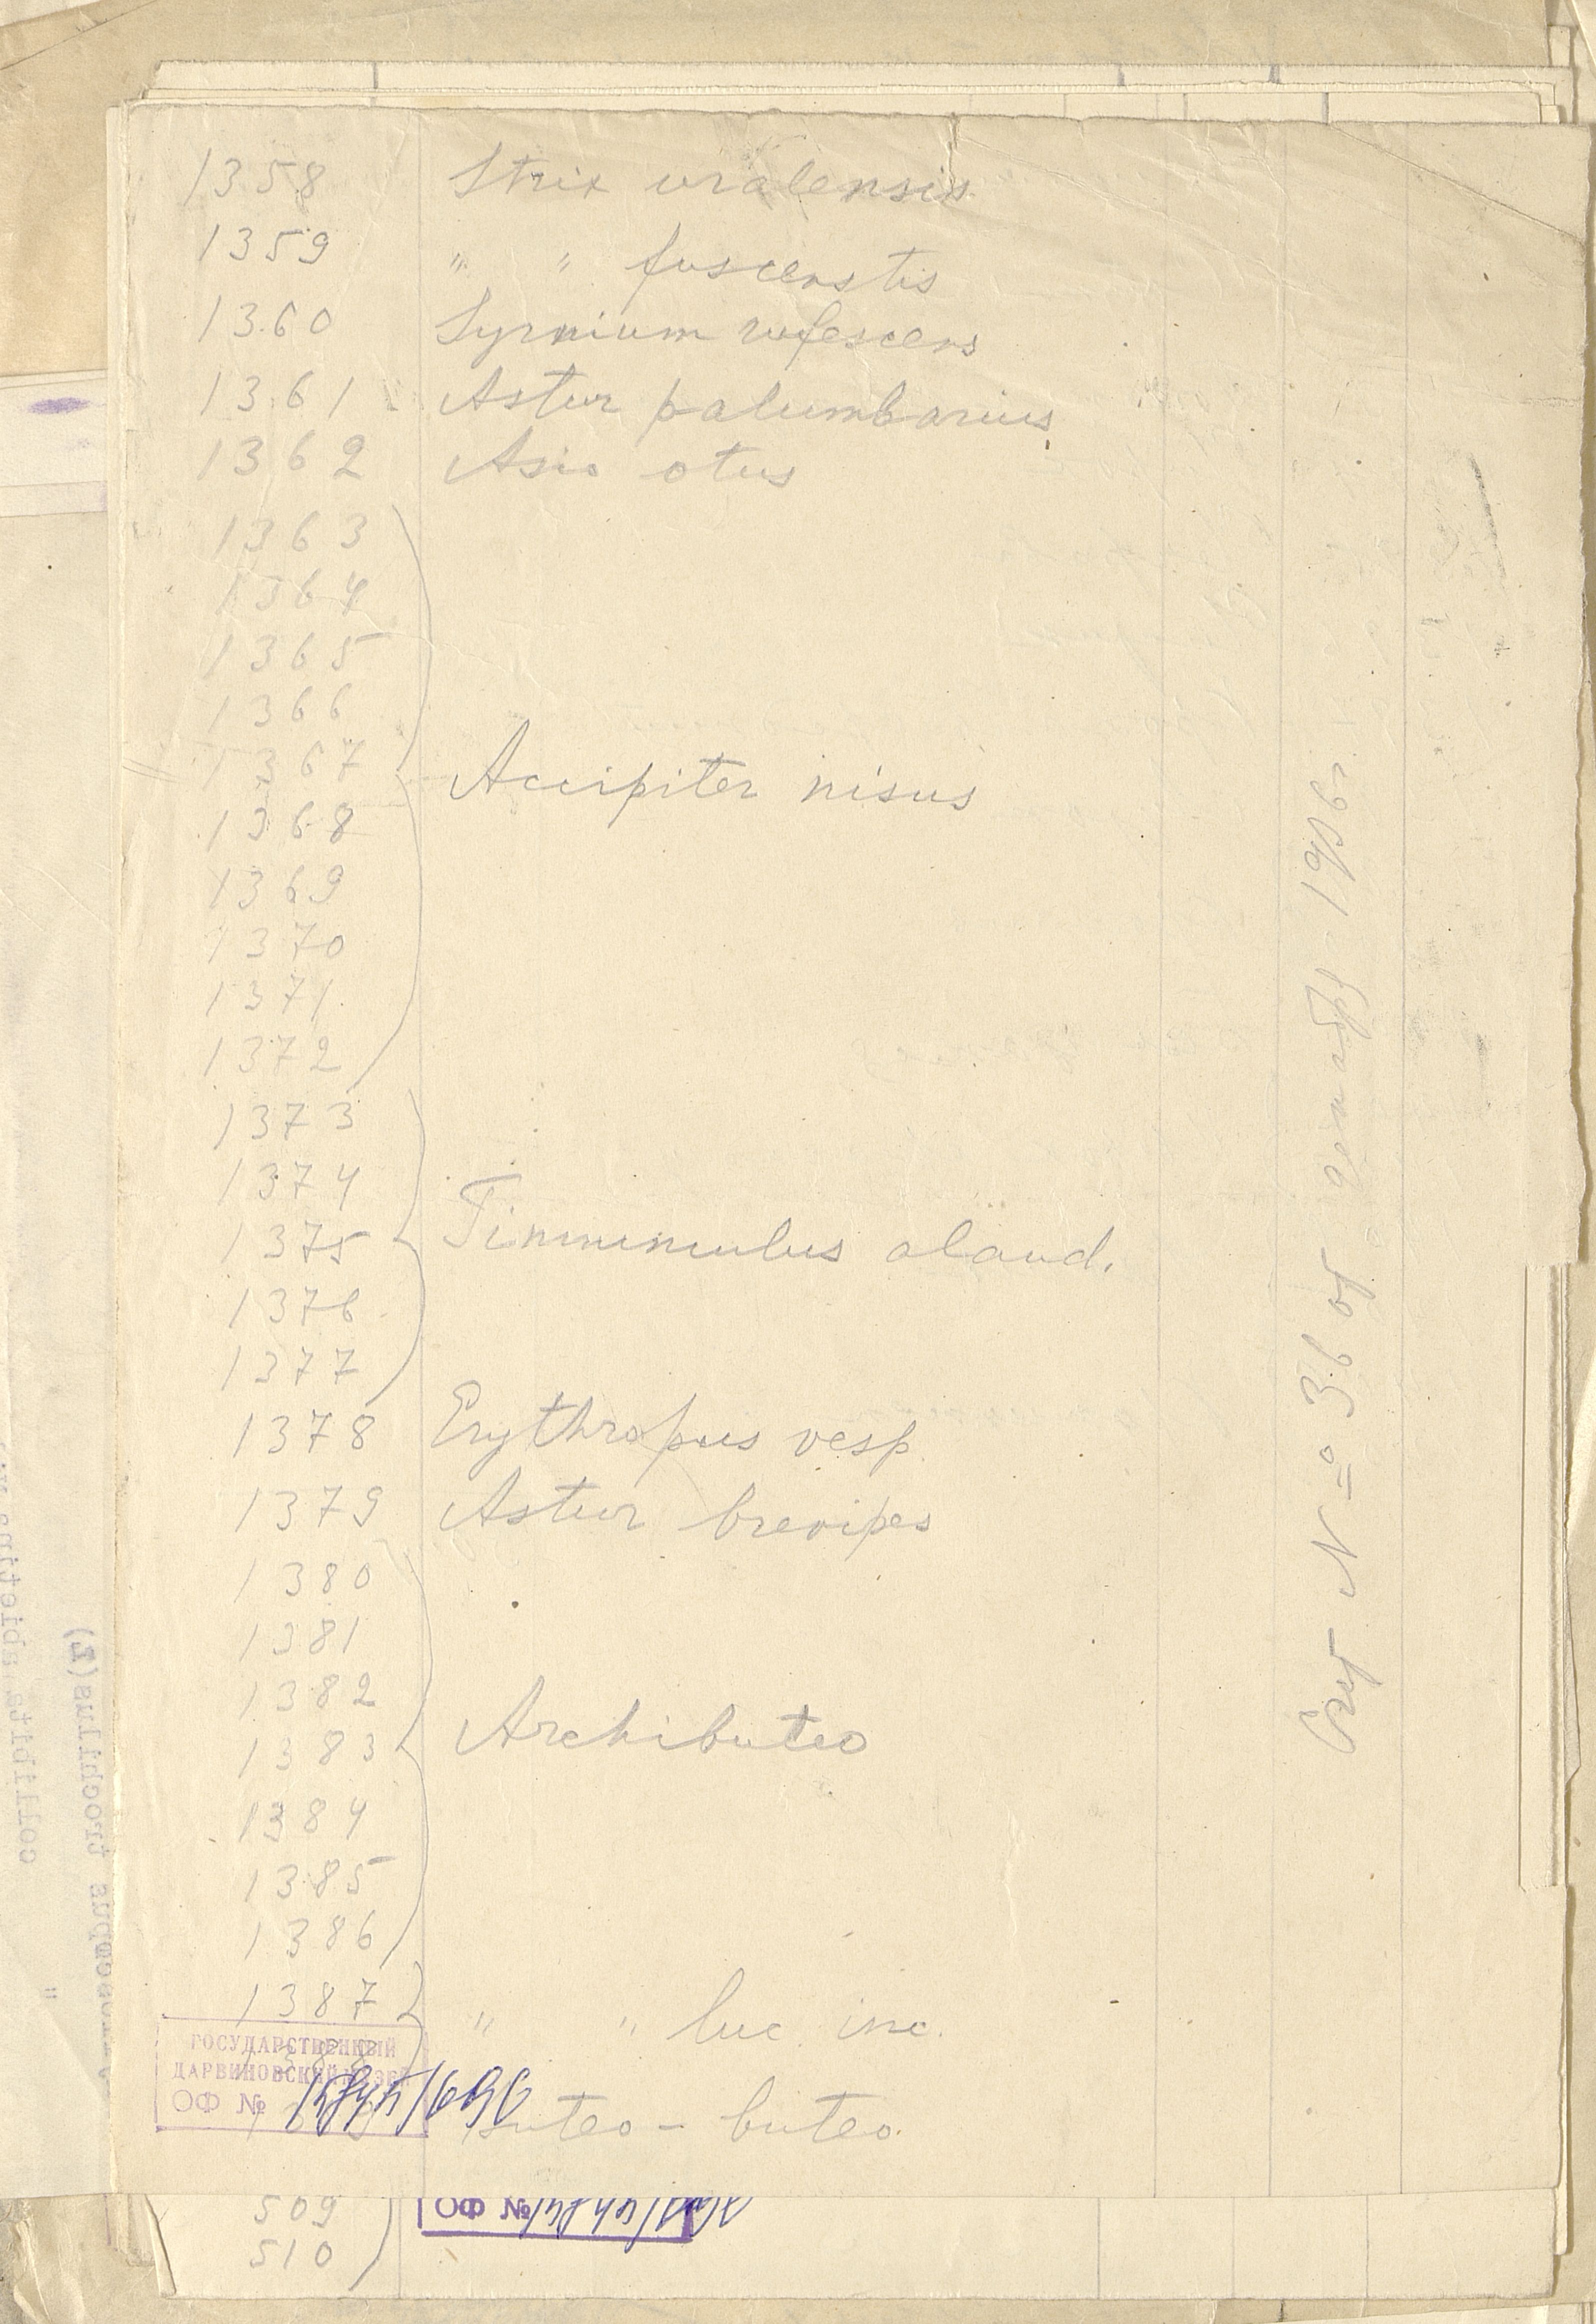 1358 Strix uralensis
1359 " " fuscens tis
1360 Syrnium rufescens
1361 Astur palumbarius
1362 Asio otus
1363
1364
1365
1366
1367 Accipiter nisus
1368
1369
1370
1371
1372
1373
1374
1375 Tinnunculus alaud.
1376
1377
1378 Erythropus vesp.
1379 Astur brevipes
1380
1381
1382
1383 Archibuteo
1384
1385
1386
1387 " " luc. inc.
1388
1389 Buteo - buteo.
ГОСУДАРСТВЕННЫЙ
ДАРВИНОВСКИЙ МУЗЕЙ
ОФ №
509
510
ОФ №
Акт № 36 от декабр 1936г.